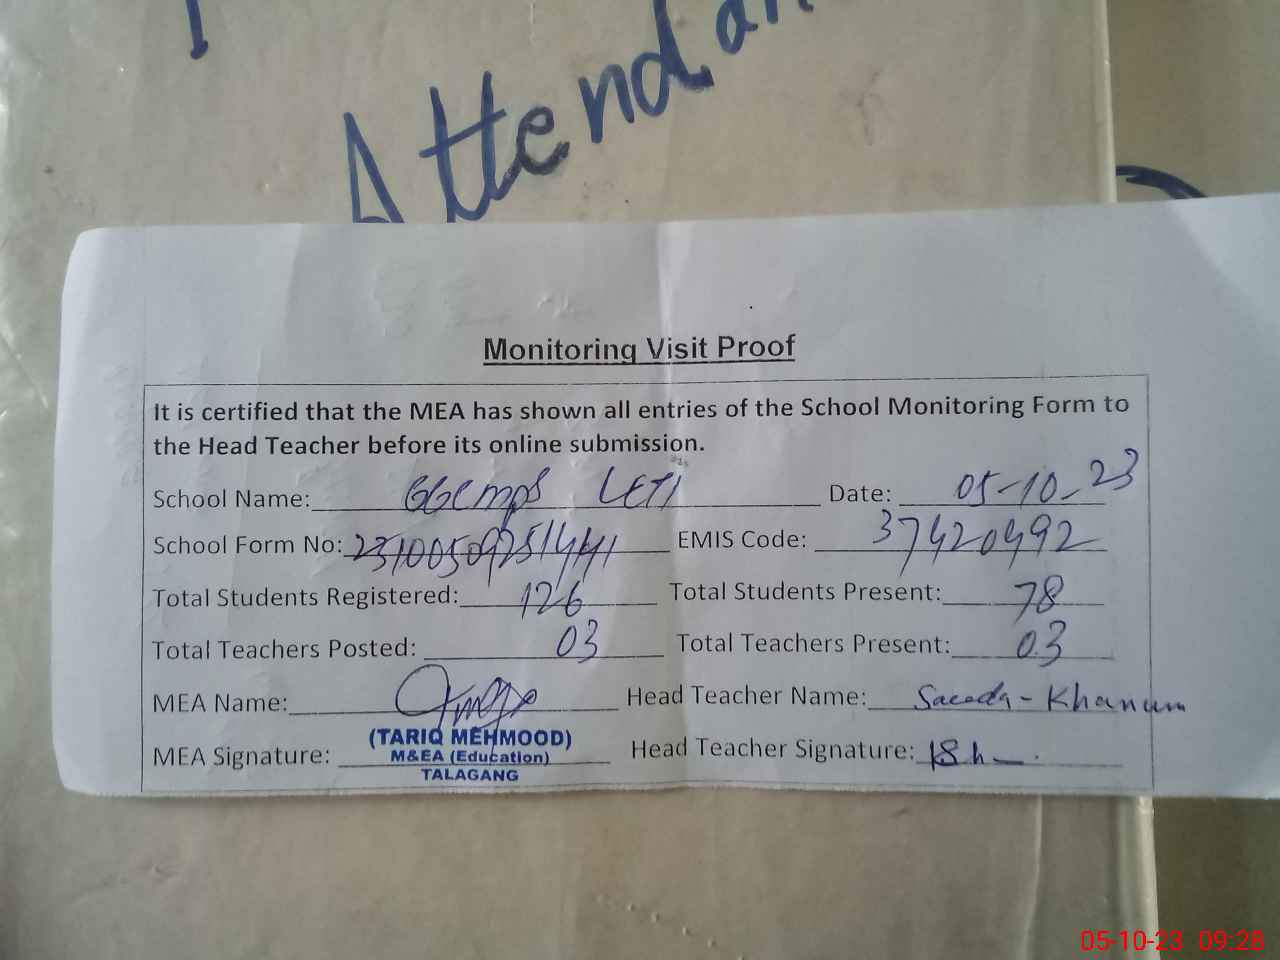 Attendan
Monitoring Visit Proof
It is certified that the MEA has shown all entries of the School Monitoring Form to
the Head Teacher before its online submission.
School Name: GGCMPS LETI Date: 05-10-23
School Form No: 23100509251441 EMIS Code: 37420492
Total Students Registered: 126 Total Students Present: 78
Total Teachers Posted: 03 Total Teachers Present: 03
MEA Name: Head Teacher Name: Saeeda-Khanum
(TARIQ MEHMOOD)
MEA Signature: M&EA (Education) Head Teacher Signature:
TALAGANG
05-10-23 09:28